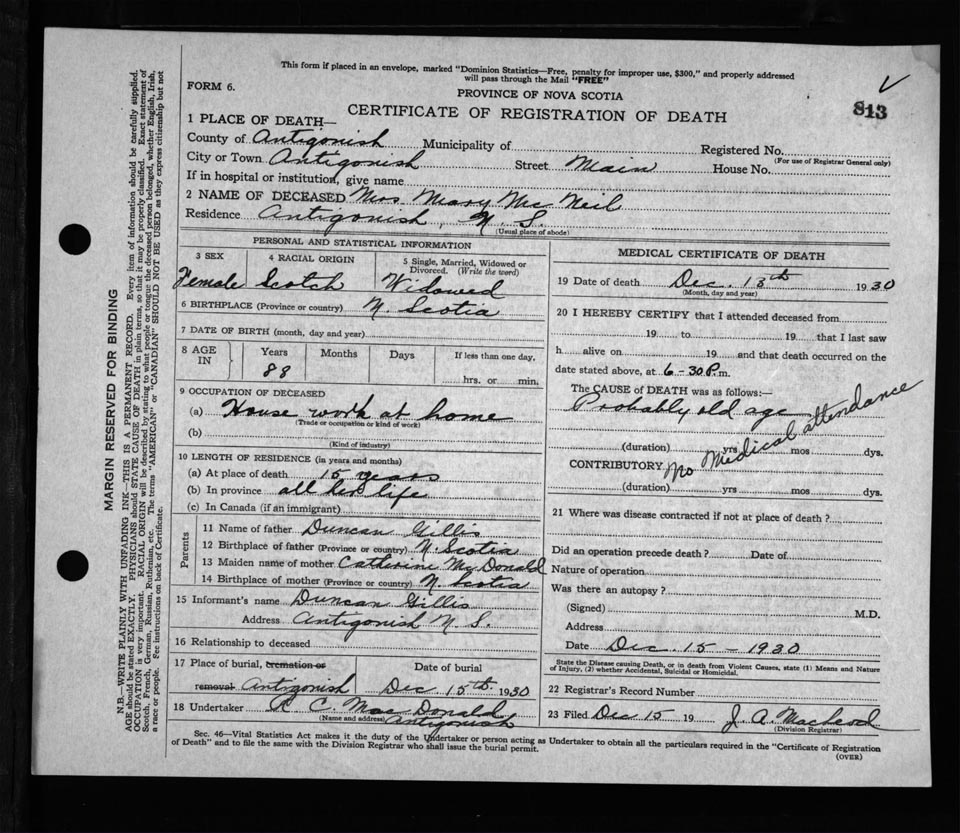 This form if placed in an envelope, marked "Dominion Statistics—Free, penalty for improper use, $300," and properly addressed
will pass through the Mail "FREE"
FORM 6.
PROVINCE OF NOVA SCOTIA
813
CERTIFICATE OF REGISTRATION OF DEATH
1 PLACE OF DEATH—
County of Antigonish Municipality of Registered No.
(For use of Registrar General only)
City or Town Antigonish Street Main House No.
If in hospital or institution, give name
2 NAME OF DECEASED Mrs Mary Mc Neil
Residence Antigonish N. S.
(Usual place of abode)
PERSONAL AND STATISTICAL INFORMATION
3 SEX 4 RACIAL ORIGIN 5 Single, Married, Widowed or
Divorced. (Write the word)
Female Scotch Widowed
6 BIRTHPLACE (Province or country) N. Scotia
7 DATE OF BIRTH (month, day and year)
8 AGE IN Years Months Days If less than one day,
88 hrs. or min.
9 OCCUPATION OF DECEASED
(a) House work at home
(Trade or occupation or kind of work)
(b)
(Kind of industry)
10 LENGTH OF RESIDENCE (in years and months)
(a) At place of death 15 years
(b) In province all her life
(c) In Canada (if an immigrant)
Parents
11 Name of father Duncan Gillis
12 Birthplace of father (Province or country) N. Scotia
13 Maiden name of mother Catherine Mc Donald
14 Birthplace of mother (Province or country) N. Scotia
15 Informant's name Duncan Gillis
Address Antigonish N. S.
16 Relationship to deceased
17 Place of burial, cremation or Date of burial
removal Antigonish Dec 15th 1930
18 Undertaker R. C. Mac Donald
(Name and address) Antigonish
MEDICAL CERTIFICATE OF DEATH
19 Date of death Dec. 13th 1930
(Month, day and year)
20 I HEREBY CERTIFY that I attended deceased from
19 to 19 that I last saw
h alive on 19 and that death occurred on the
date stated above, at 6-30 P.m.
The CAUSE of DEATH was as follows:
Probably old age
(duration) yrs mos dys.
CONTRIBUTORY No Medical attendance
(duration) yrs mos dys.
21 Where was disease contracted if not at place of death?
Did an operation precede death? Date of
Nature of operation
Was there an autopsy?
(Signed) M.D.
Address
Date Dec. 15 - 1930
State the Disease causing Death, or in death from Violent Causes, state (1) Means and Nature
of Injury, (2) whether Accidental, Suicidal or Homicidal.
22 Registrar's Record Number
23 Filed Dec 15 19 J. A. Macleod
(Division Registrar)
Sec. 46—Vital Statistics Act makes it the duty of the Undertaker or person acting as Undertaker to obtain all the particulars required in the "Certificate of Registration
of Death" and to file the same with the Division Registrar who shall issue the burial permit.
(OVER)
MARGIN RESERVED FOR BINDING
N.B.—WRITE PLAINLY WITH UNFADING INK—THIS IS A PERMANENT RECORD. Every item of information should be carefully supplied.
AGE should be stated EXACTLY. PHYSICIANS should STATE CAUSE OF DEATH in plain terms, so that it may be properly classified. Exact statement of
OCCUPATION is very important. RACIAL ORIGIN will be described by stating to what people or tongue the deceased person belonged, whether English, Irish,
Scotch, French, German, Russian, Ruthenian, etc. The terms "AMERICAN" or "CANADIAN" SHOULD NOT BE USED as they express citizenship but not
a race or people. Fee instructions on back of Certificate.